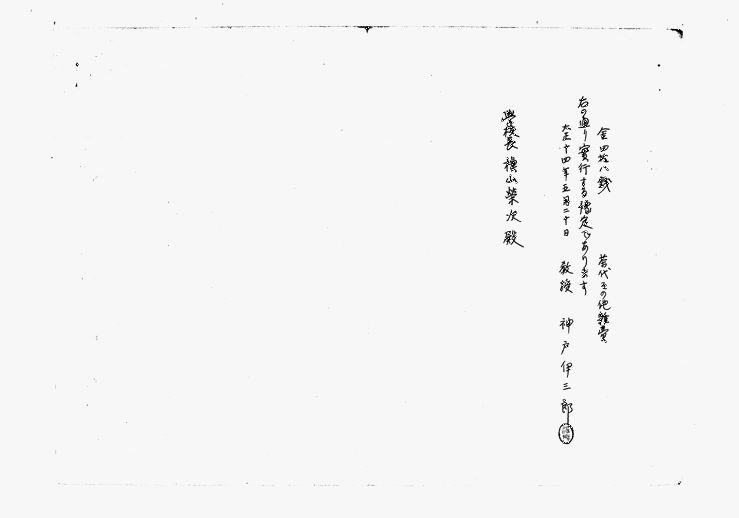 金四拾八銭　茶代其の他雑費
右の通り實行する豫定であります
大正十四年五月二十日　教授　神戸伊三郎
學校長　槇山榮次殿